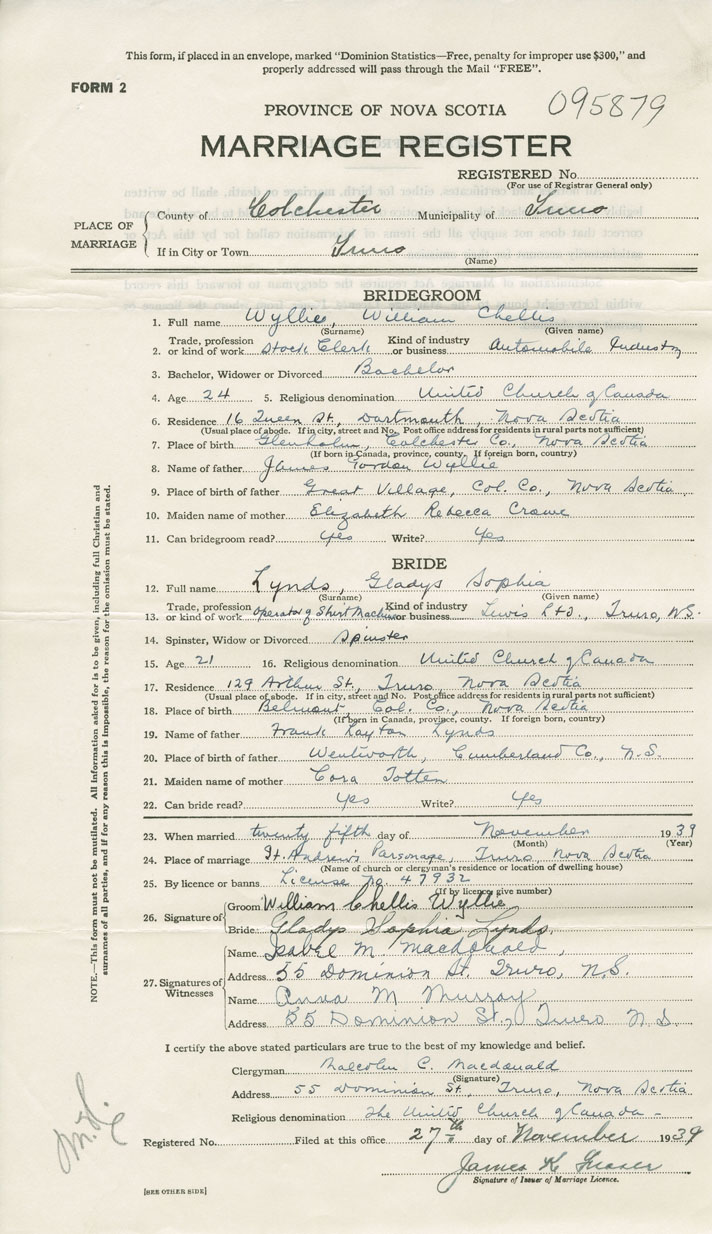 This form, if placed in an envelope, marked "Dominion Statistics—Free, penalty for improper use $300," and
properly addressed will pass through the Mail "FREE".
FORM 2
PROVINCE OF NOVA SCOTIA 095879
MARRIAGE REGISTER
REGISTERED No.
(For use of Registrar General only)
PLACE OF MARRIAGE
County of Colchester Municipality of Truro
If in City or Town Truro
(Name)
BRIDEGROOM
1. Full name Wyllie, William Chellis
(Surname) (Given name)
2. Trade, profession or kind of work Stock Clerk Kind of industry or business Automobile Industry
3. Bachelor, Widower or Divorced Bachelor
4. Age 24 5. Religious denomination United Church of Canada
6. Residence 16 Queen St., Dartmouth, Nova Scotia
(Usual place of abode. If in city, street and No. Post office address for residents in rural parts not sufficient)
7. Place of birth Glenholm, Colchester Co., Nova Scotia
(If born in Canada, province, county. If foreign born, country)
8. Name of father James Gordon Wyllie
9. Place of birth of father Great Village, Col. Co., Nova Scotia
10. Maiden name of mother Elizabeth Rebecca Crowe
11. Can bridegroom read? Yes Write? Yes
BRIDE
12. Full name Lynds, Gladys Sophia
(Surname) (Given name)
13. Trade, profession or kind of work Operator of Shirt Machine Kind of industry or business Lewis Ltd., Truro, N.S.
14. Spinster, Widow or Divorced Spinster
15. Age 21 16. Religious denomination United Church of Canada
17. Residence 129 Arthur St., Truro, Nova Scotia
(Usual place of abode. If in city, street and No. Post office address for residents in rural parts not sufficient)
18. Place of birth Belmont, Col. Co., Nova Scotia
(If born in Canada, province, county. If foreign born, country)
19. Name of father Frank Layton Lynds
20. Place of birth of father Wentworth, Cumberland Co., N.S.
21. Maiden name of mother Cora Totten
22. Can bride read? Yes Write? Yes
23. When married twenty fifth day of November 1939
(Month) (Year)
24. Place of marriage St. Andrew's Parsonage, Truro, Nova Scotia
(Name of church or clergyman's residence or location of dwelling house)
25. By licence or banns License no. 47932
(If by licence give number)
26. Signature of
Groom William Chellis Wyllie
Bride Gladys Sophia Lynds
27. Signatures of Witnesses
Name Isabel M. Macdonald,
Address 55 Dominion St. Truro, N.S.
Name Anna M Murray
Address 55 Dominion St., Truro N.S.
I certify the above stated particulars are true to the best of my knowledge and belief.
Clergyman Malcolm C. Macdonald
(Signature)
Address 55 Dominion St., Truro, Nova Scotia
Religious denomination The United Church of Canada -
Registered No. Filed at this office 27th day of November 1939
James K Fraser
Signature of Issuer of Marriage Licence.
[SEE OTHER SIDE]
NOTE.—This form must not be mutilated. All information asked for is to be given, including full Christian and
surnames of all parties, and if for any reason this is impossible, the reason for the omission must be stated.